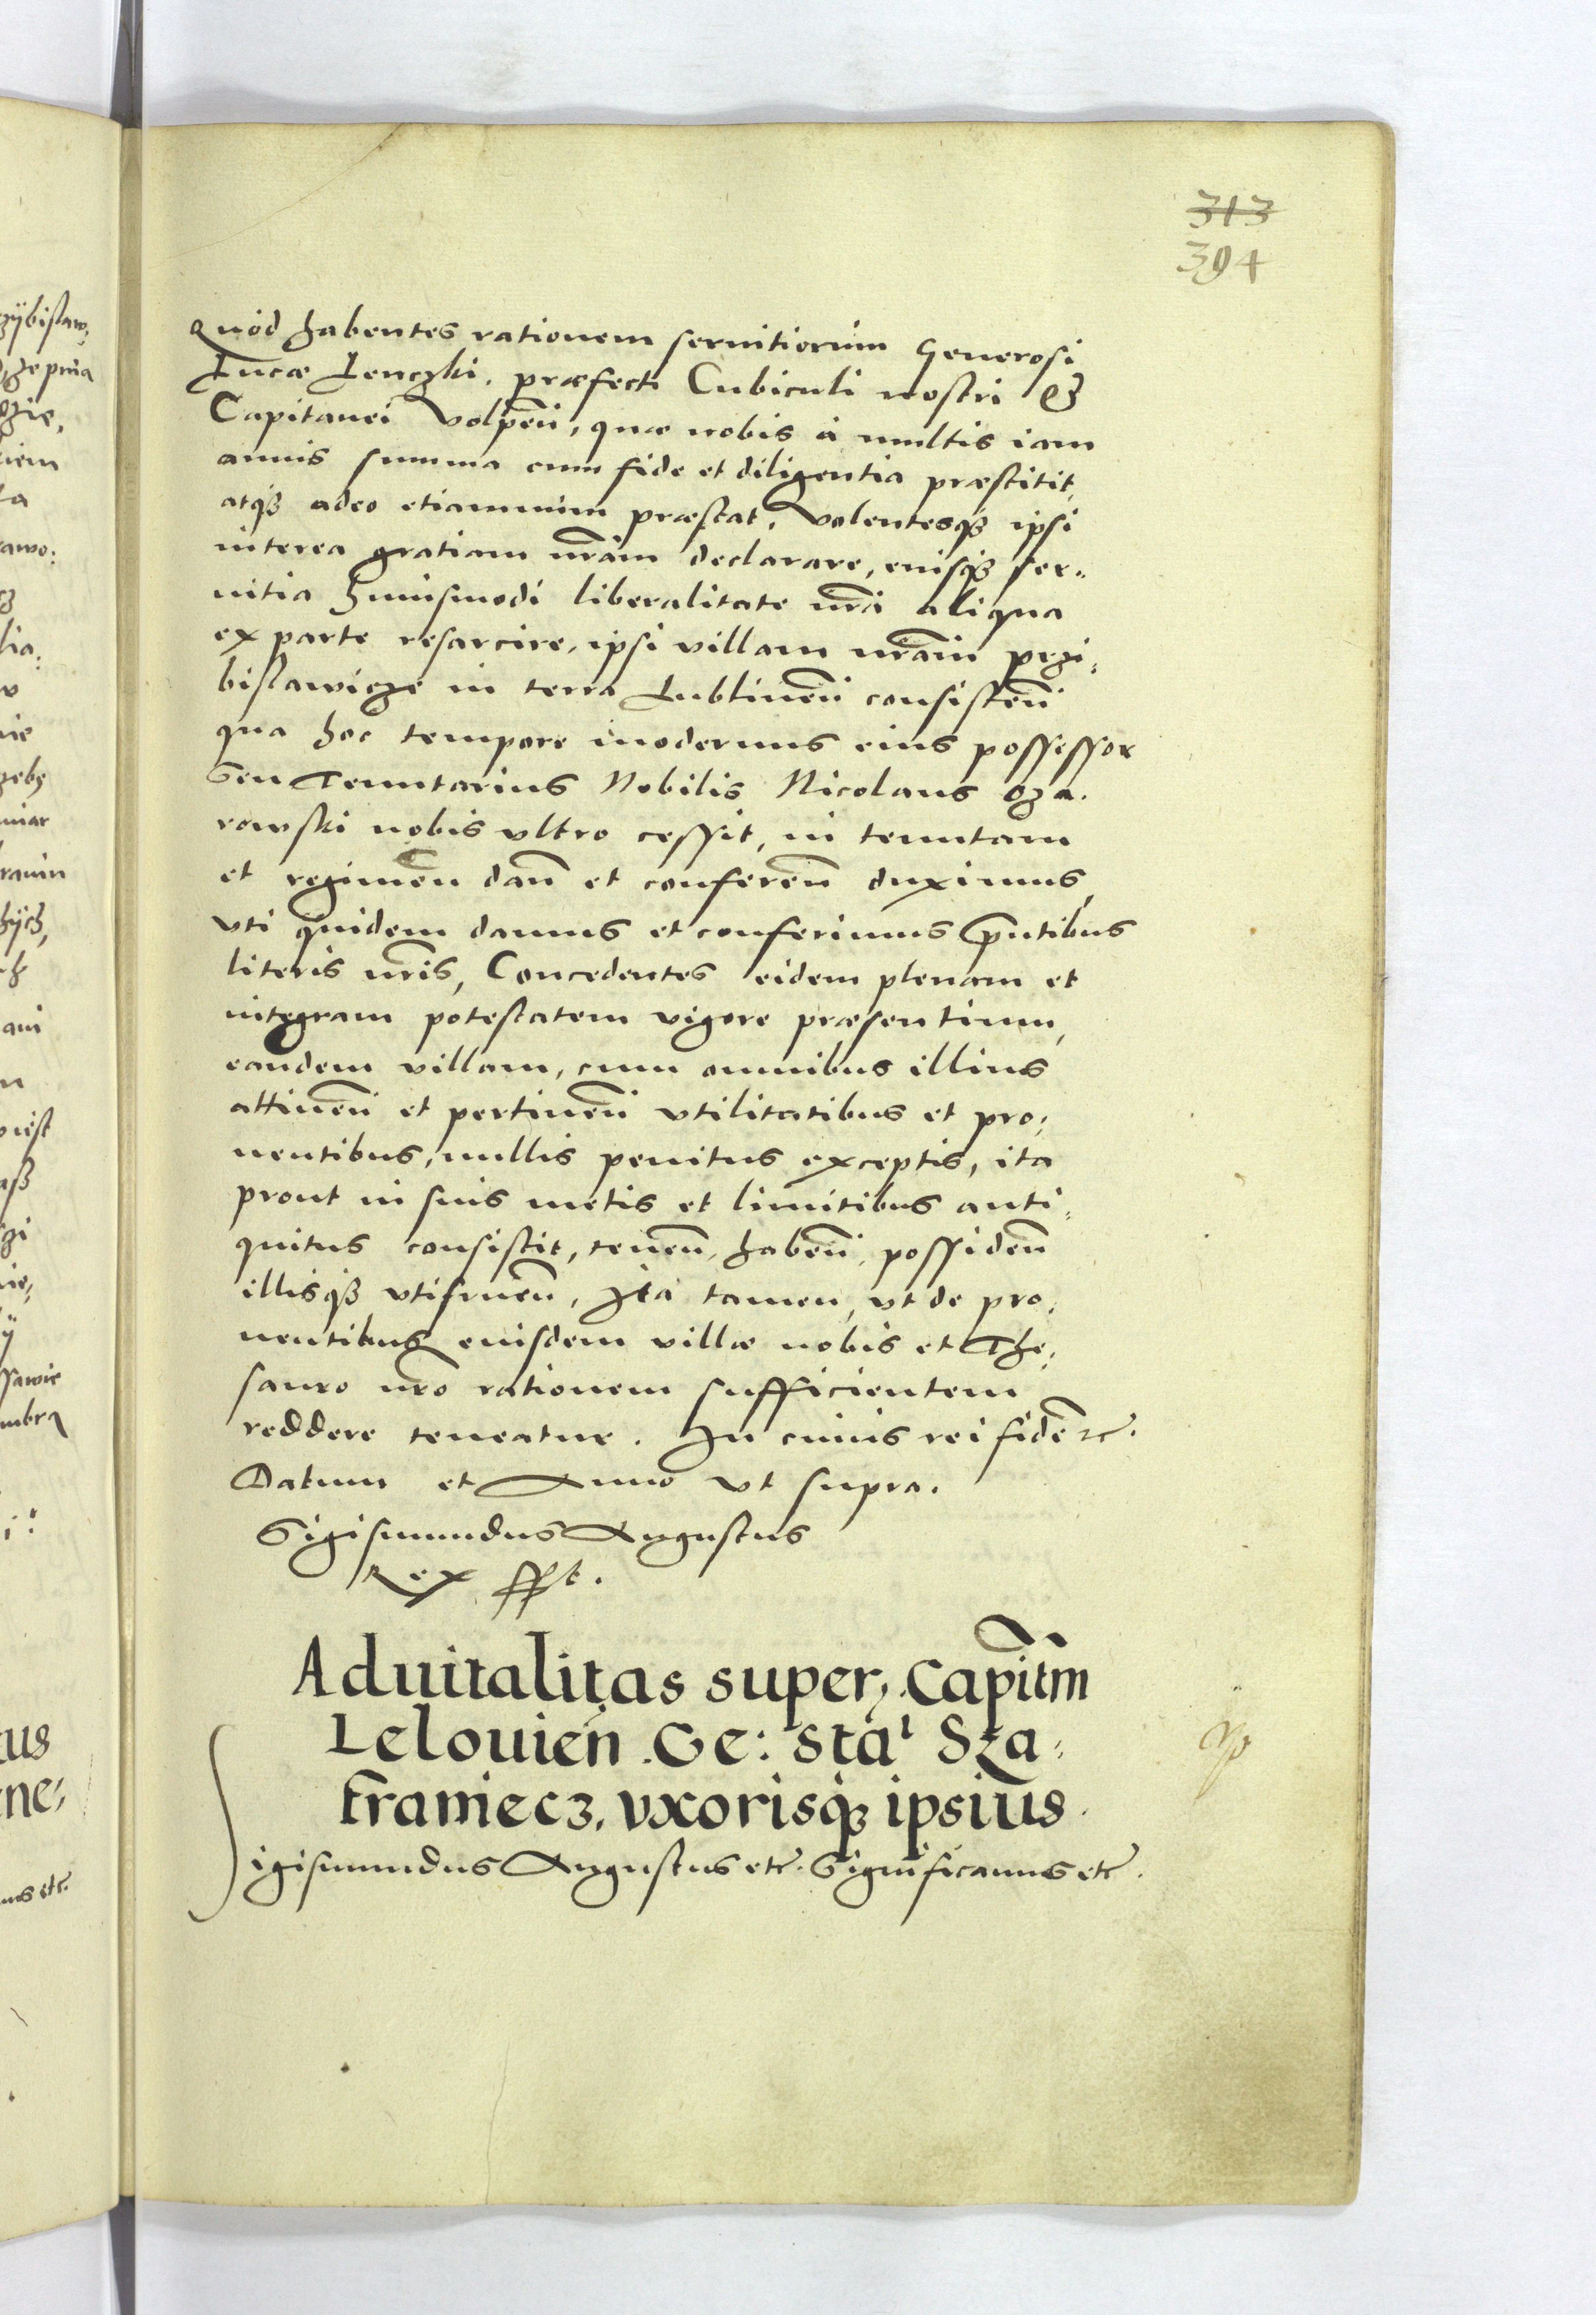 313
394
Quod habentes rationem seruitiorum Generosi
Lucæ Lenczki, præfecti Cubiculi nostri &
Capitanei Volpeñ, quæ nobis à multis iam
annis summa cum fide et diligentia præstitit,
atqȝ adeo etiamnum præstat, Volentesqȝ ipsi
interea gratiam nr̃am declarare, eiusqȝ ser-
uitia huiusmodi liberalitate nr̃a aliqua
ex parte resarcire, ipsi villam nr̃am przi-
bislawicze in terra Lublineñ consisteñ
qua hoc tempore modernus eius possessor
seu Tenutarius Nobilis Nicolaus oza-
rowski nobis vltro cessit, in tenutam
et regimen dañ et confereñ duximus,
vti quidem damus et conferimus p̃ntibus
literis nr̃is, Concedentes eidem plenam et
integram potestatem vigore præsentium,
eandem villam, cum omnibus illius
attineñ et pertineñ vtilitatibus et pro-
uentibus, nullis penitus exceptis, ita
prout in suis metis et limitibus anti-
quitus consistit, teneñ, habeñ, possideñ
illisqȝ vtifrueñ, Ita tamen, vt de pro-
uentibus eiusdem villæ nobis et The-
sauro nr̃o rationem sufficientem
reddere teneatur. In cuius rei fidẽ etc.
Datum et Anno vt supra.
Sigismundus Augustus
Rex sspt.
Aduitalitas super Capitm̃
Lelouieñ. Ge: Sta: Sza-
franiecz. vxorisqȝ ipsius.
Sigismundus Augustus etc. Significamus etc.